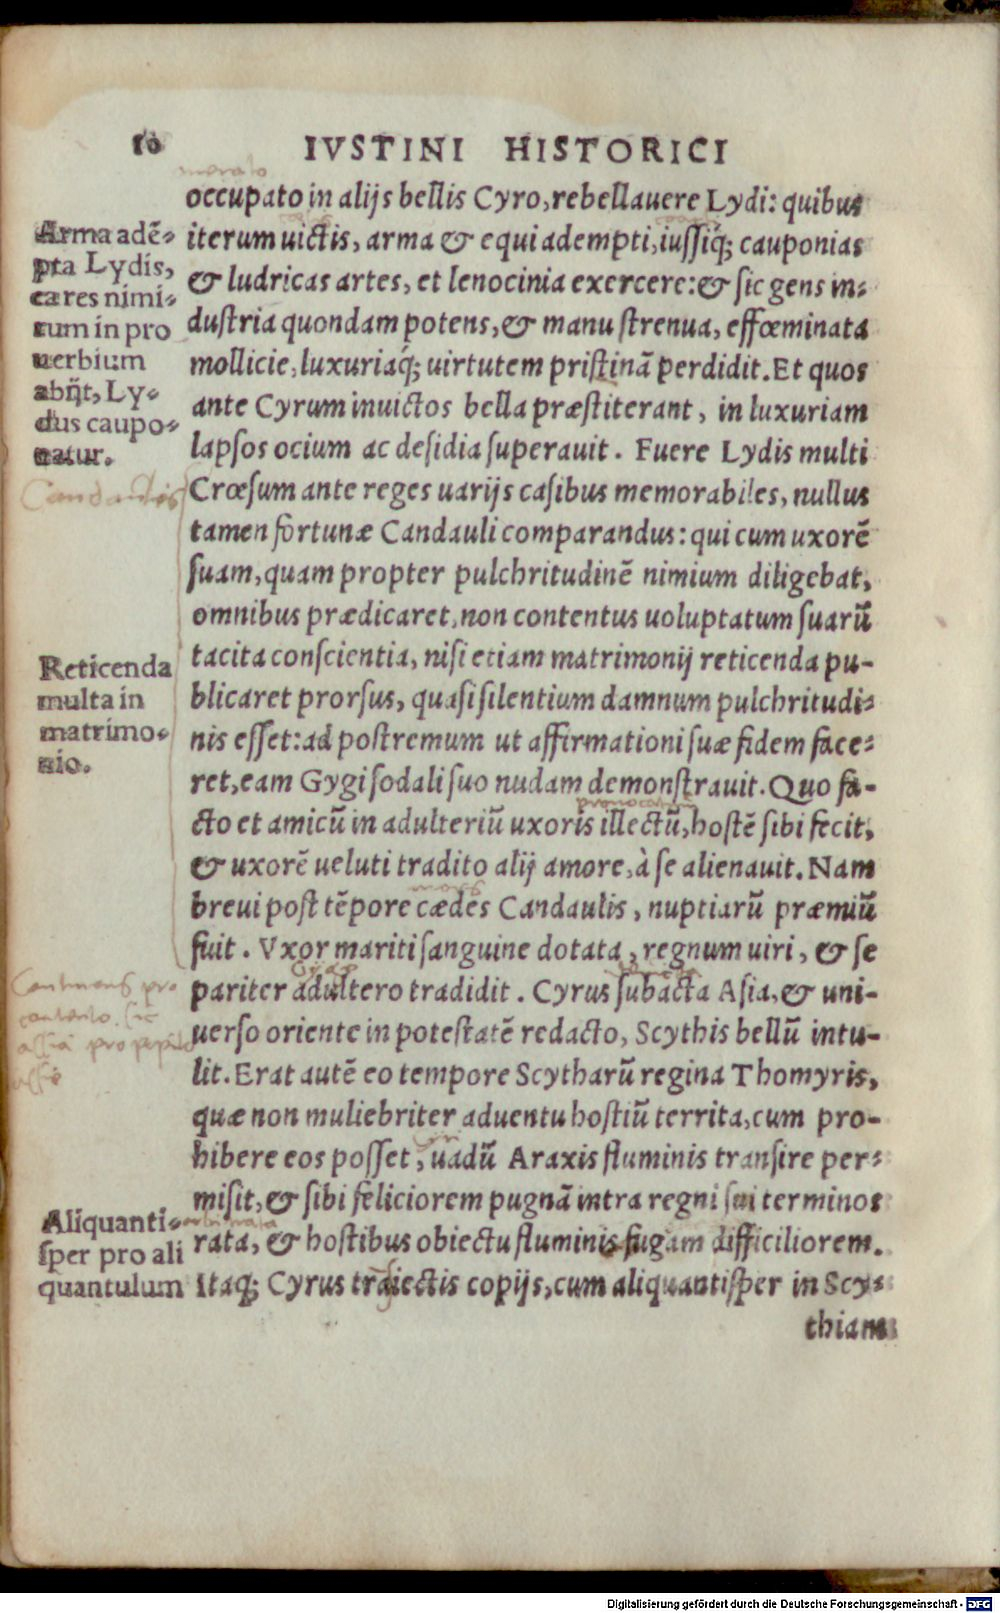 10 IVSTINI HISTORICI
occupato in alijs bellis Cyro, rebellauere Lydi: quibus
iterum uictis, arma & equi adempti, iussiq́; cauponias
& ludricas artes, et lenocinia exercere: & sic gens in-
dustria quondam potens, & manu strenua, effœminata
mollicie, luxuriaq́; uirtutem pristinã perdidit. Et quos
ante Cyrum inuictos bella præstiterant, in luxuriam
lapsos ocium ac desidia superauit. Fuere Lydis multi
Crœsum ante reges uarijs casibus memorabiles, nullus
tamen fortunæ Candauli comparandus: qui cum uxorẽ
suam, quam propter pulchritudinẽ nimium diligebat,
omnibus prædicaret, non contentus uoluptatum suarũ
tacita conscientia, nisi etiam matrimonij reticenda pu-
blicaret prorsus, quasi silentium damnum pulchritudi-
nis esset: ad postremum ut affirmationi suæ fidem face-
ret, eam Gygi sodali suo nudam demonstrauit. Quo fa-
cto et amicũ in adulteriũ uxoris illectũ, hostẽ sibi fecit,
& uxorẽ ueluti tradito alij amore, à se alienauit. Nam
breui post tẽpore cædes Candaulis, nuptiarũ præmiũ
fuit. Vxor mariti sanguine dotata, regnum uiri, & se
pariter adultero tradidit. Cyrus subacta Asia, & uni-
uerso oriente in potestatẽ redacto, Scythis bellũ intu-
lit. Erat autẽ eo tempore Scytharũ regina Thomyris,
quæ non muliebriter aduentu hostiũ territa, cum pro-
hibere eos posset, uadũ Araxis fluminis transire per-
misit, & sibi feliciorem pugnã intra regni sui terminos
rata, & hostibus obiectu fluminis fugam difficiliorem.
Itaq; Cyrus traiectis copijs, cum aliquantisper in Scy-
thiam
Arma adẽ-
pta Lydis,
ea res nimi-
rum in pro
uerbium
abijt, Ly-
dus caupo-
natur.
Candaules
Reticenda
multa in
matrimo-
nio.
Aliquanti-
sper pro ali
quantulum
Digitalisierung gefördert durch die Deutsche Forschungsgemeinschaft - DFG